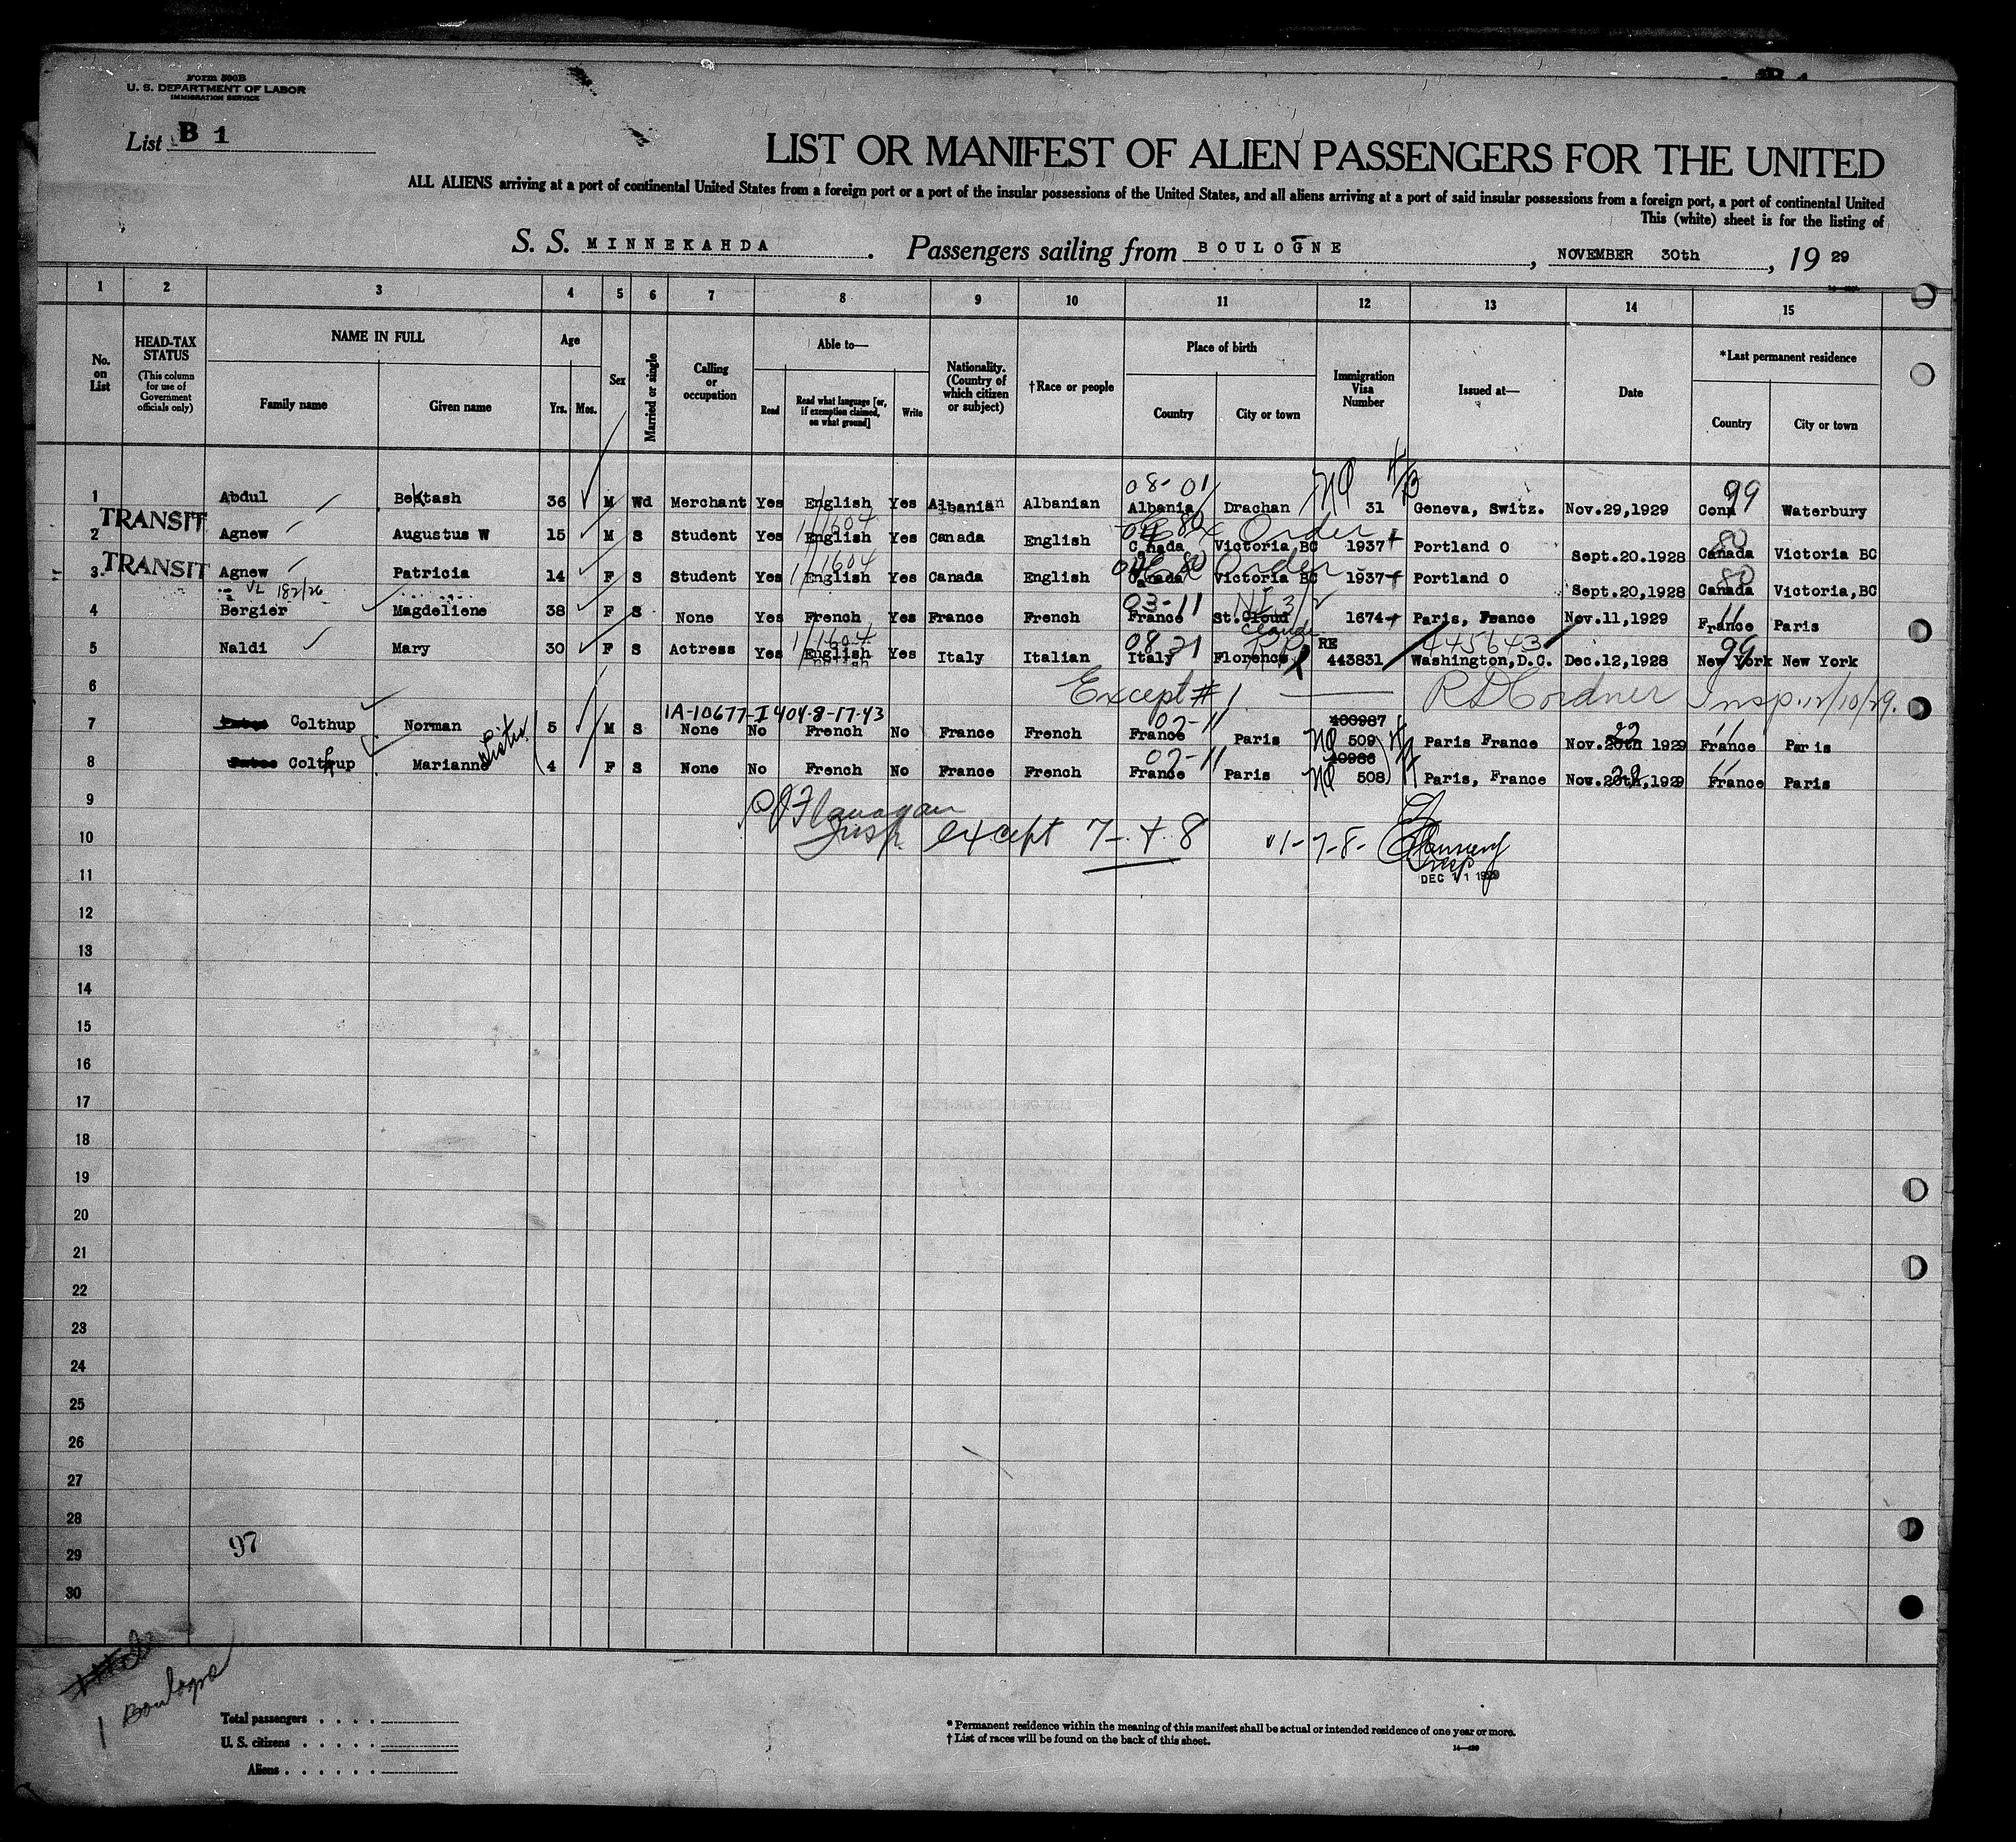 Form 500B
U. S. DEPARTMENT OF LABOR
IMMIGRATION SERVICE
List B 1
LIST OR MANIFEST OF ALIEN PASSENGERS FOR THE UNITED
ALL ALIENS arriving at a port of continental United States from a foreign port or a port of the insular possessions of the United States, and all aliens arriving at a port of said insular possessions from a foreign port, a port of continental United
This (white) sheet is for the listing of
S. S. MINNEKAHDA. Passengers sailing from BOULOGNE, NOVEMBER 30th, 19 29
1 2 3 4 5 6 7 8 9 10 11 12 13 14 15
No. on List
HEAD-TAX STATUS
(This column for use of Government officials only)
NAME IN FULL
Family name Given name
Age
Yrs. Mos.
Sex
Married or single
Calling or occupation
Able to—
Read
Read what language [or, if exemption claimed, on what ground]
Write
Nationality. (Country of which citizen or subject)
†Race or people
Place of birth
Country City or town
Immigration Visa Number
Issued at—
Date
*Last permanent residence
Country City or town
08-01 99
1 Abdul Bektash 36 M Wd Merchant Yes English Yes Albanian Albanian Albania Drachan 31 Geneva, Switz. Nov.29,1929 Conn Waterbury
TRANSIT
1/1604 80 Order 80
2 Agnew Augustus W 15 M S Student Yes English Yes Canada English Canada Victoria BC 1937 Portland O Sept.20.1928 Canada Victoria BC
TRANSIT
1/1604 80 Order 80
3 Agnew Patricia 14 F S Student Yes English Yes Canada English Canada Victoria BC 1937 Portland O Sept.20,1928 Canada Victoria,BC
VL 182/26
03-11 11
4 Bergier Magdeliene 38 F S None Yes French Yes France French France St.Cloud 1674 Paris, France Nov.11,1929 France Paris
Claude
1/1604 08 21 RE 445643 99
5 Naldi Mary 30 F S Actress Yes English Yes Italy Italian Italy Florence 443831 Washington,D.C. Dec.12,1928 New York New York
6 Except # 1 R D Cordner Insp. 12/10/29.
1A-10677-I 404-8-17-43
02-11 400987 22 11
7 Colthup Norman 5 M S None No French No France French France Paris NQ 509 Paris France Nov.20th 1929 France Paris
Sister
02-11 40986 22 11
8 Colthup Marianne 4 F S None No French No France French France Paris NQ 508 Paris, France Nov.20th,1929 France Paris
9
Flanagan
Insp. except 7 + 8 1-7-8-
10
Insp
DEC 11 1929
11
12
13
14
15
16
17
18
19
20
21
22
23
24
25
26
27
28
29
97
30
1 Boulogne
Total passengers . . . .
U. S. citizens . . . . .
Aliens . . . . . .
* Permanent residence within the meaning of this manifest shall be actual or intended residence of one year or more.
† List of races will be found on the back of this sheet.